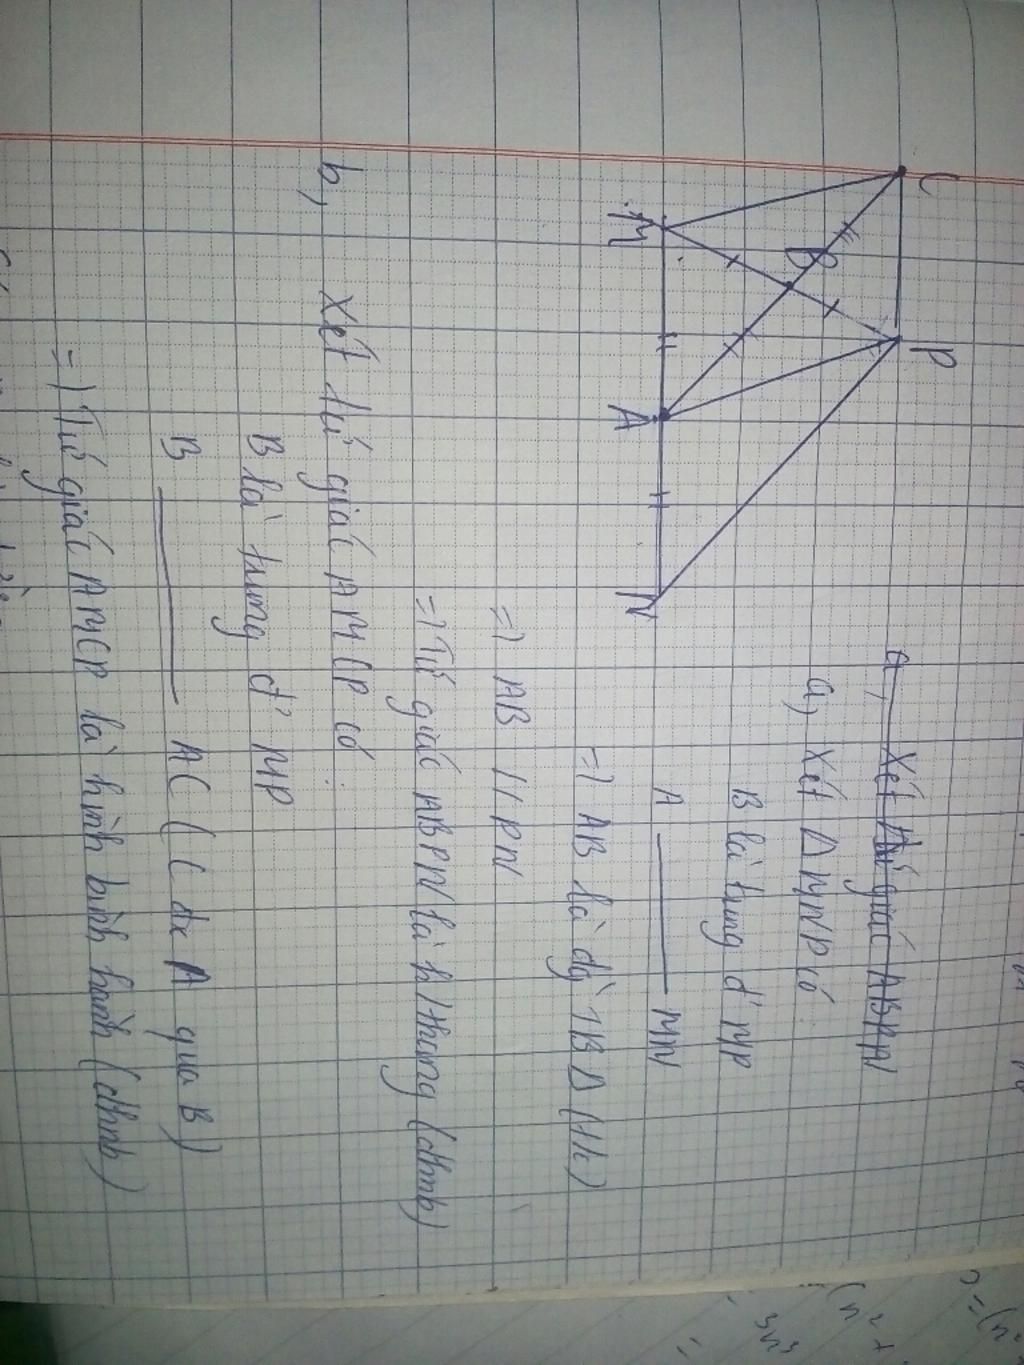 C
P
B
M
A
N
a, Xét tứ giác ABPN
a, Xét Δ MNP có:
B là trung đ' MP
A ——— MN
=) AB là đg̀ TB Δ (đk)
=) AB // PN
=) Tứ giác ABPN là h/thang (dhnb)
b, Xét tứ giác AMCP có:
B là trung đ' MP
B ——— AC ( C đx A qua B )
=) Tứ giác AMCP là hình bình hành (dhnb)